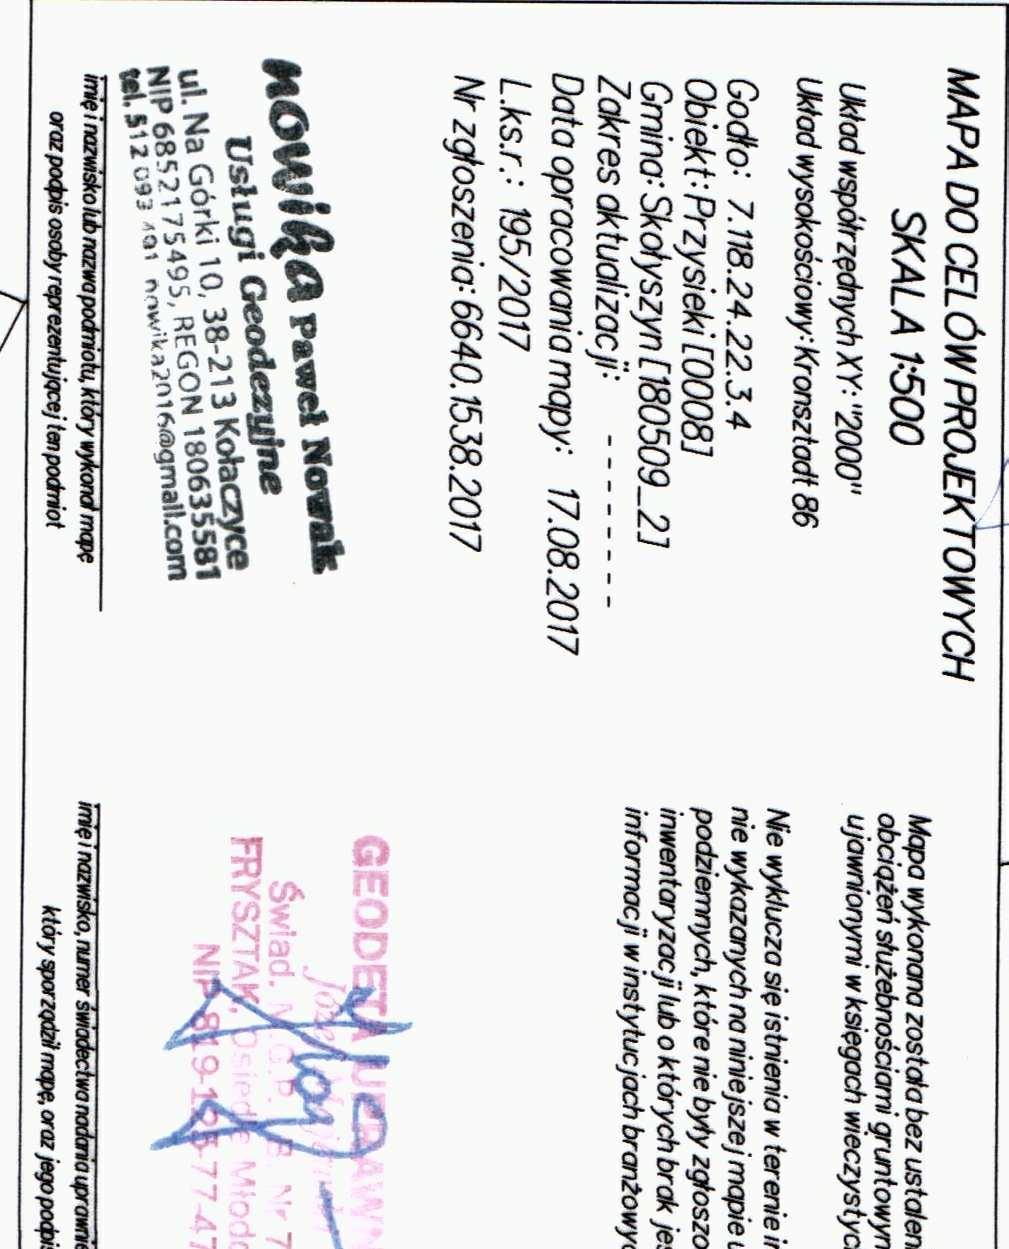 MAPA DO CELÓW PROJEKTOWYCH
SKALA 1:500
Układ współrzędnych XY: "2000"
Układ wysokościowy: Kronsztadt 86
Godło: 7.118.24.22.3.4
Obiekt: Przysieki [0008]
Gmina: Skołyszyn [180509_2]
Zakres aktualizacji: --------
Data opracowania mapy: 17.08.2017
L.ks.r.: 195/2017
Nr zgłoszenia: 6640.1538.2017
nowika Paweł Nowak
Usługi Geodezyjne
ul. Na Górki 10, 38-213 Kołaczyce
NIP 6852175495, REGON 180635581
tel. 512 093 491 nowika2016@gmail.com
imię i nazwisko lub nazwa podmiotu, który wykonał mapę
oraz podpis osoby reprezentującej ten podmiot
Mapa wykonana została bez ustalen
obciążeń służebnościami gruntowym
ujawnionymi w księgach wieczystyc
Nie wyklucza się istnienia w terenie in
nie wykazanych na niniejszej mapie u
podziemnych, które nie były zgłoszo
inwentaryzacji lub o których brak jes
informacji w instytucjach branżowyc
GEODETA UPRAWN
Józef
Świad. Nr 7
FRYSZTAK, Osiedle Młod
NIP 819-125-77-47
imię i nazwisko, numer świadectwa nadania uprawnie
który sporządził mapę, oraz jego podpis